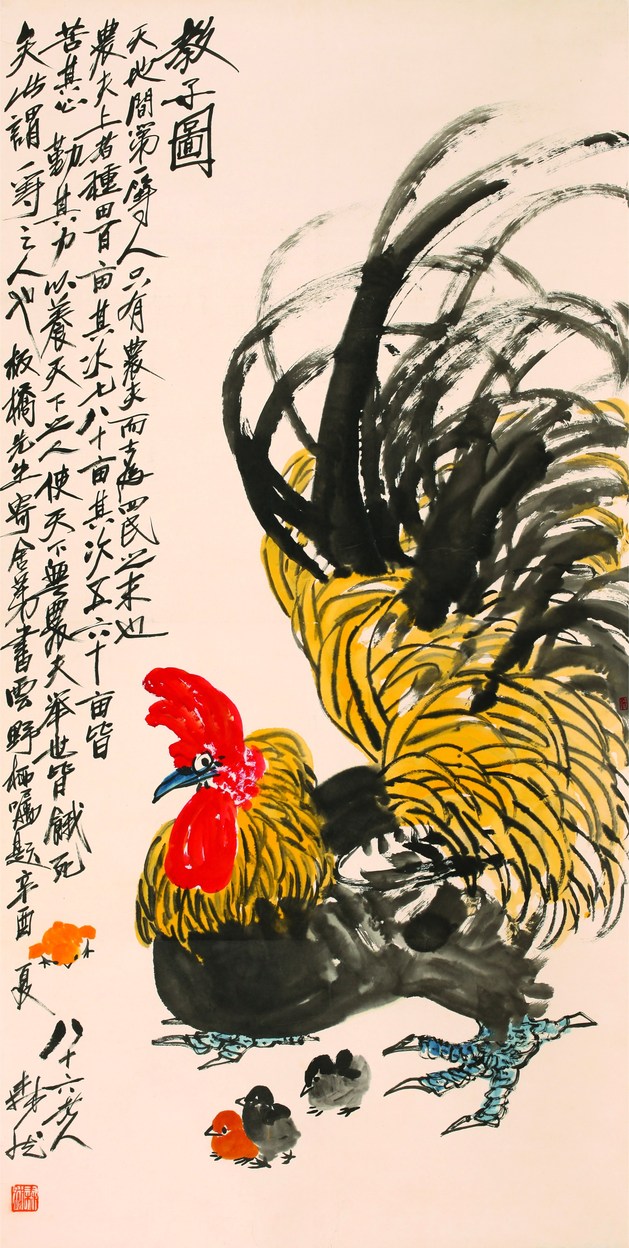 教子圖
天地間第一等人只有農夫而士為四民之末也
農夫上者種田百亩其次七八十亩其次五六十亩皆
苦其心勤其力以養天下之人使天下無農夫举世皆餓死
矣此謂一等之人也板橋先生寄舍弟書雲野栖囑題辛酉夏
八十六老人